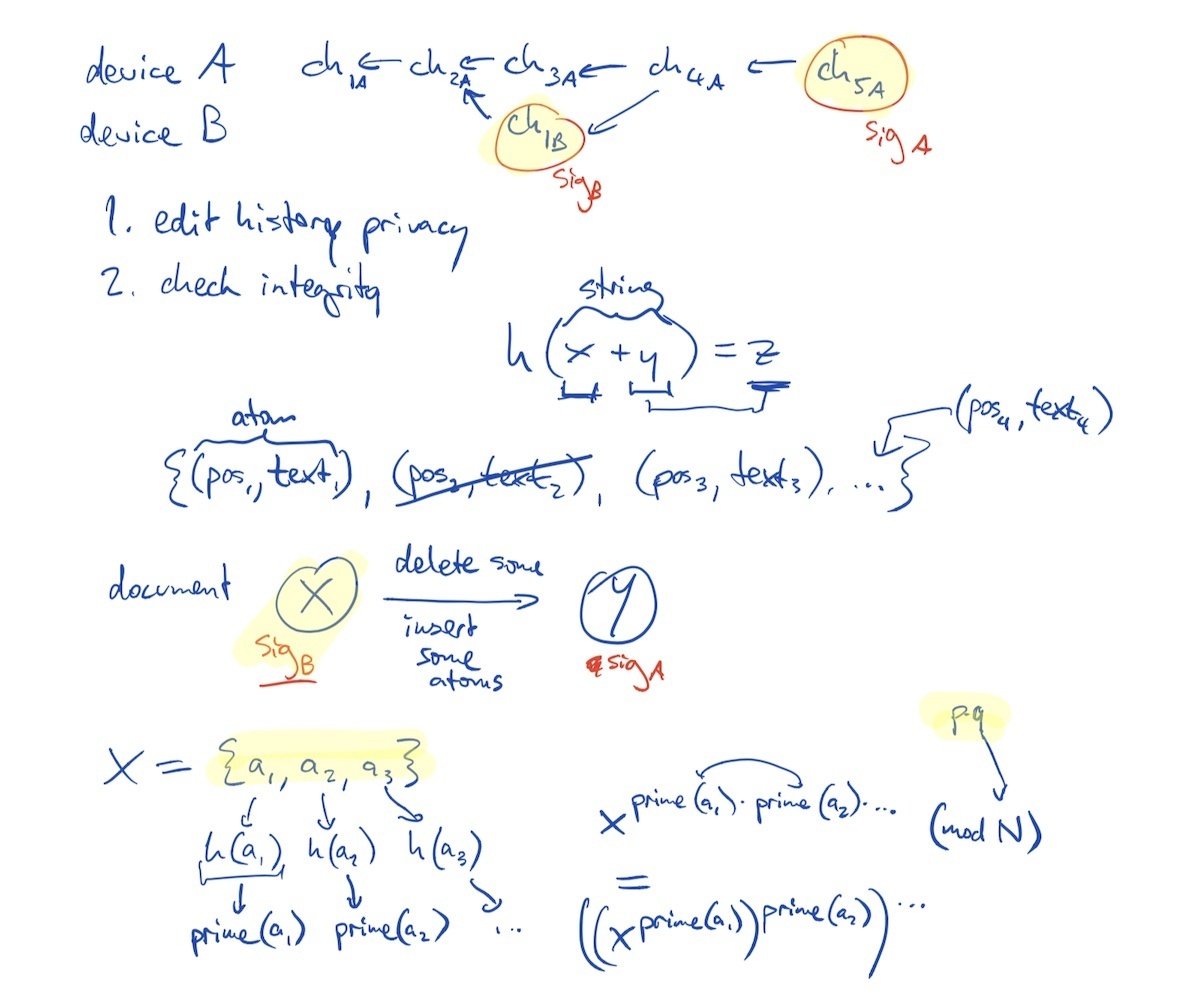 device A ch1A ← ch2A ← ch3A ← ch4A ← ch5A
device B ch1B
sigA
sigB
1. edit history privacy
2. check integrity
string
h(x + y) = z
atom
(pos4, text4)
{(pos1, text1), (pos2, text2), (pos3, text3), ...}
document X delete some Y
insert
some
atoms
sigB
sigA
pq
X = {a1, a2, a3}
x^prime(a1)·prime(a2)·... (mod N)
h(a1) h(a2) h(a3)
=
prime(a1) prime(a2) ...
((x^prime(a1))^prime(a2))^...